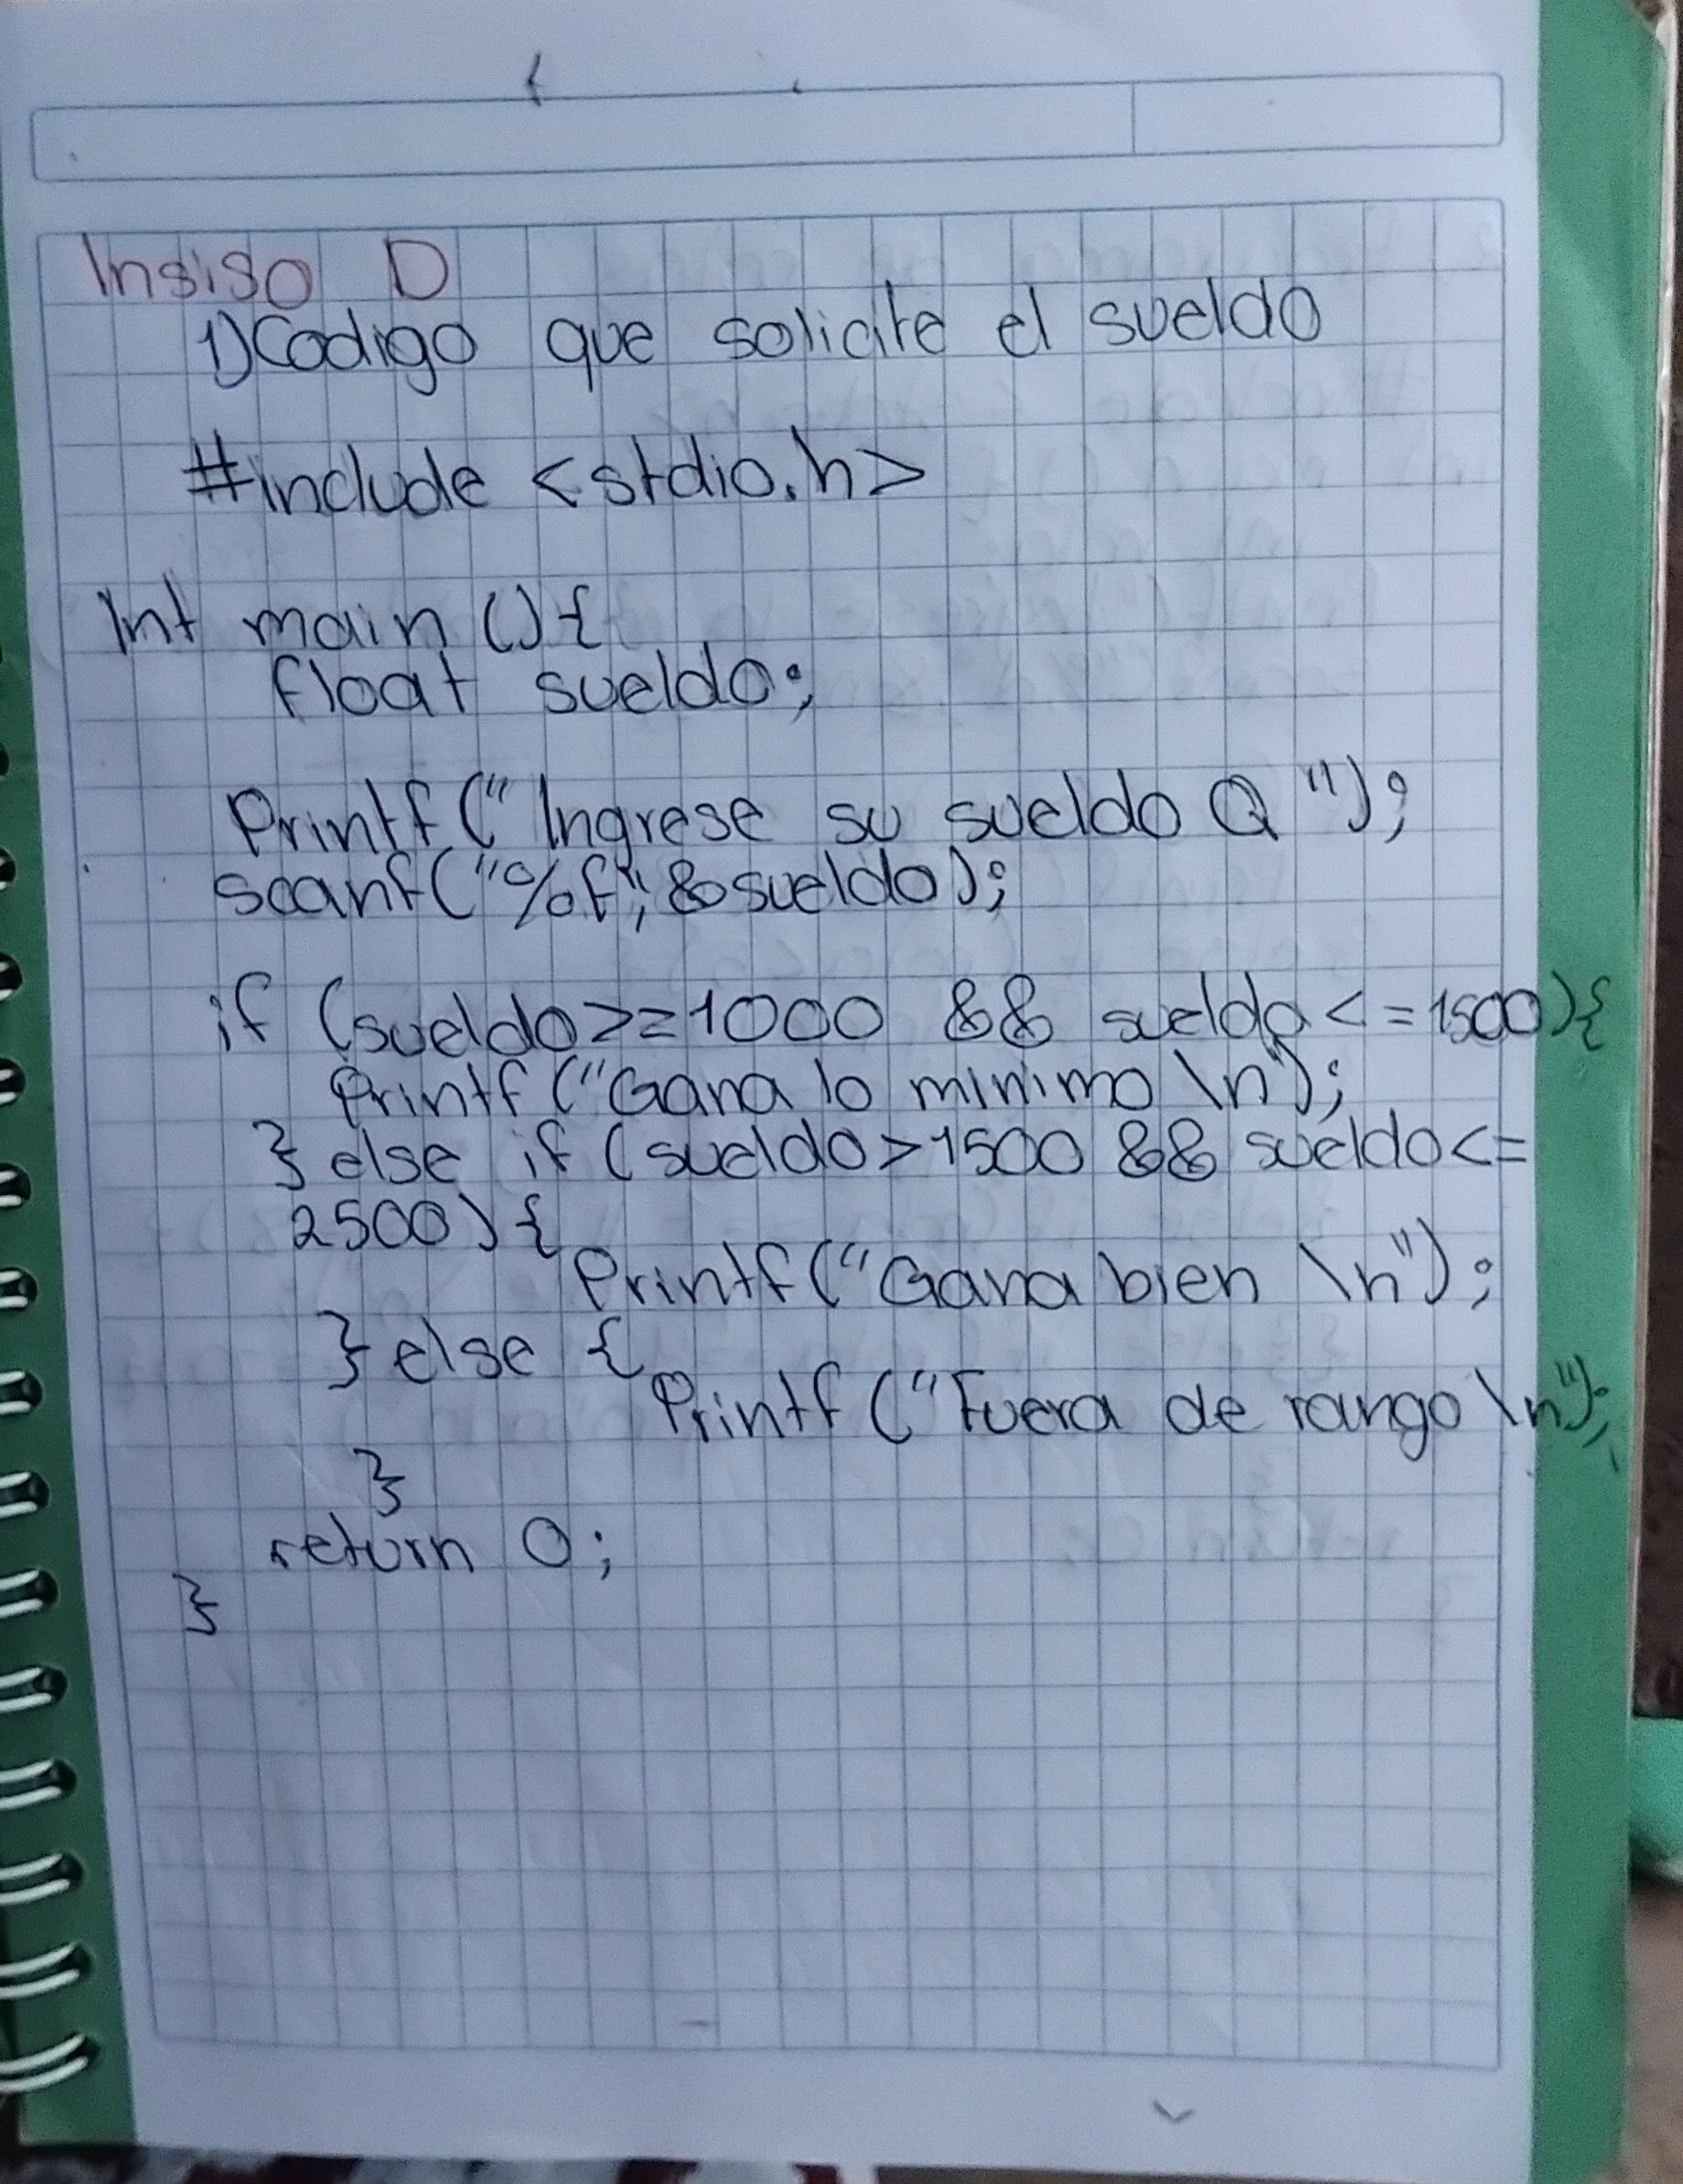 Insiso D
1) Codigo que solicite el sueldo
#include <stdio.h>
Int main () {
float sueldo;
Printf (" Ingrese su sueldo Q ");
scanf ("%f", &sueldo);
if (sueldo >= 1000 && sueldo <= 1500) {
Printf ("Gana lo minimo \n");
} else if (sueldo > 1500 && sueldo <=
2500) {
Printf ("Gana bien \n");
} else {
Printf ("Fuera de rango \n");
}
return 0;
}